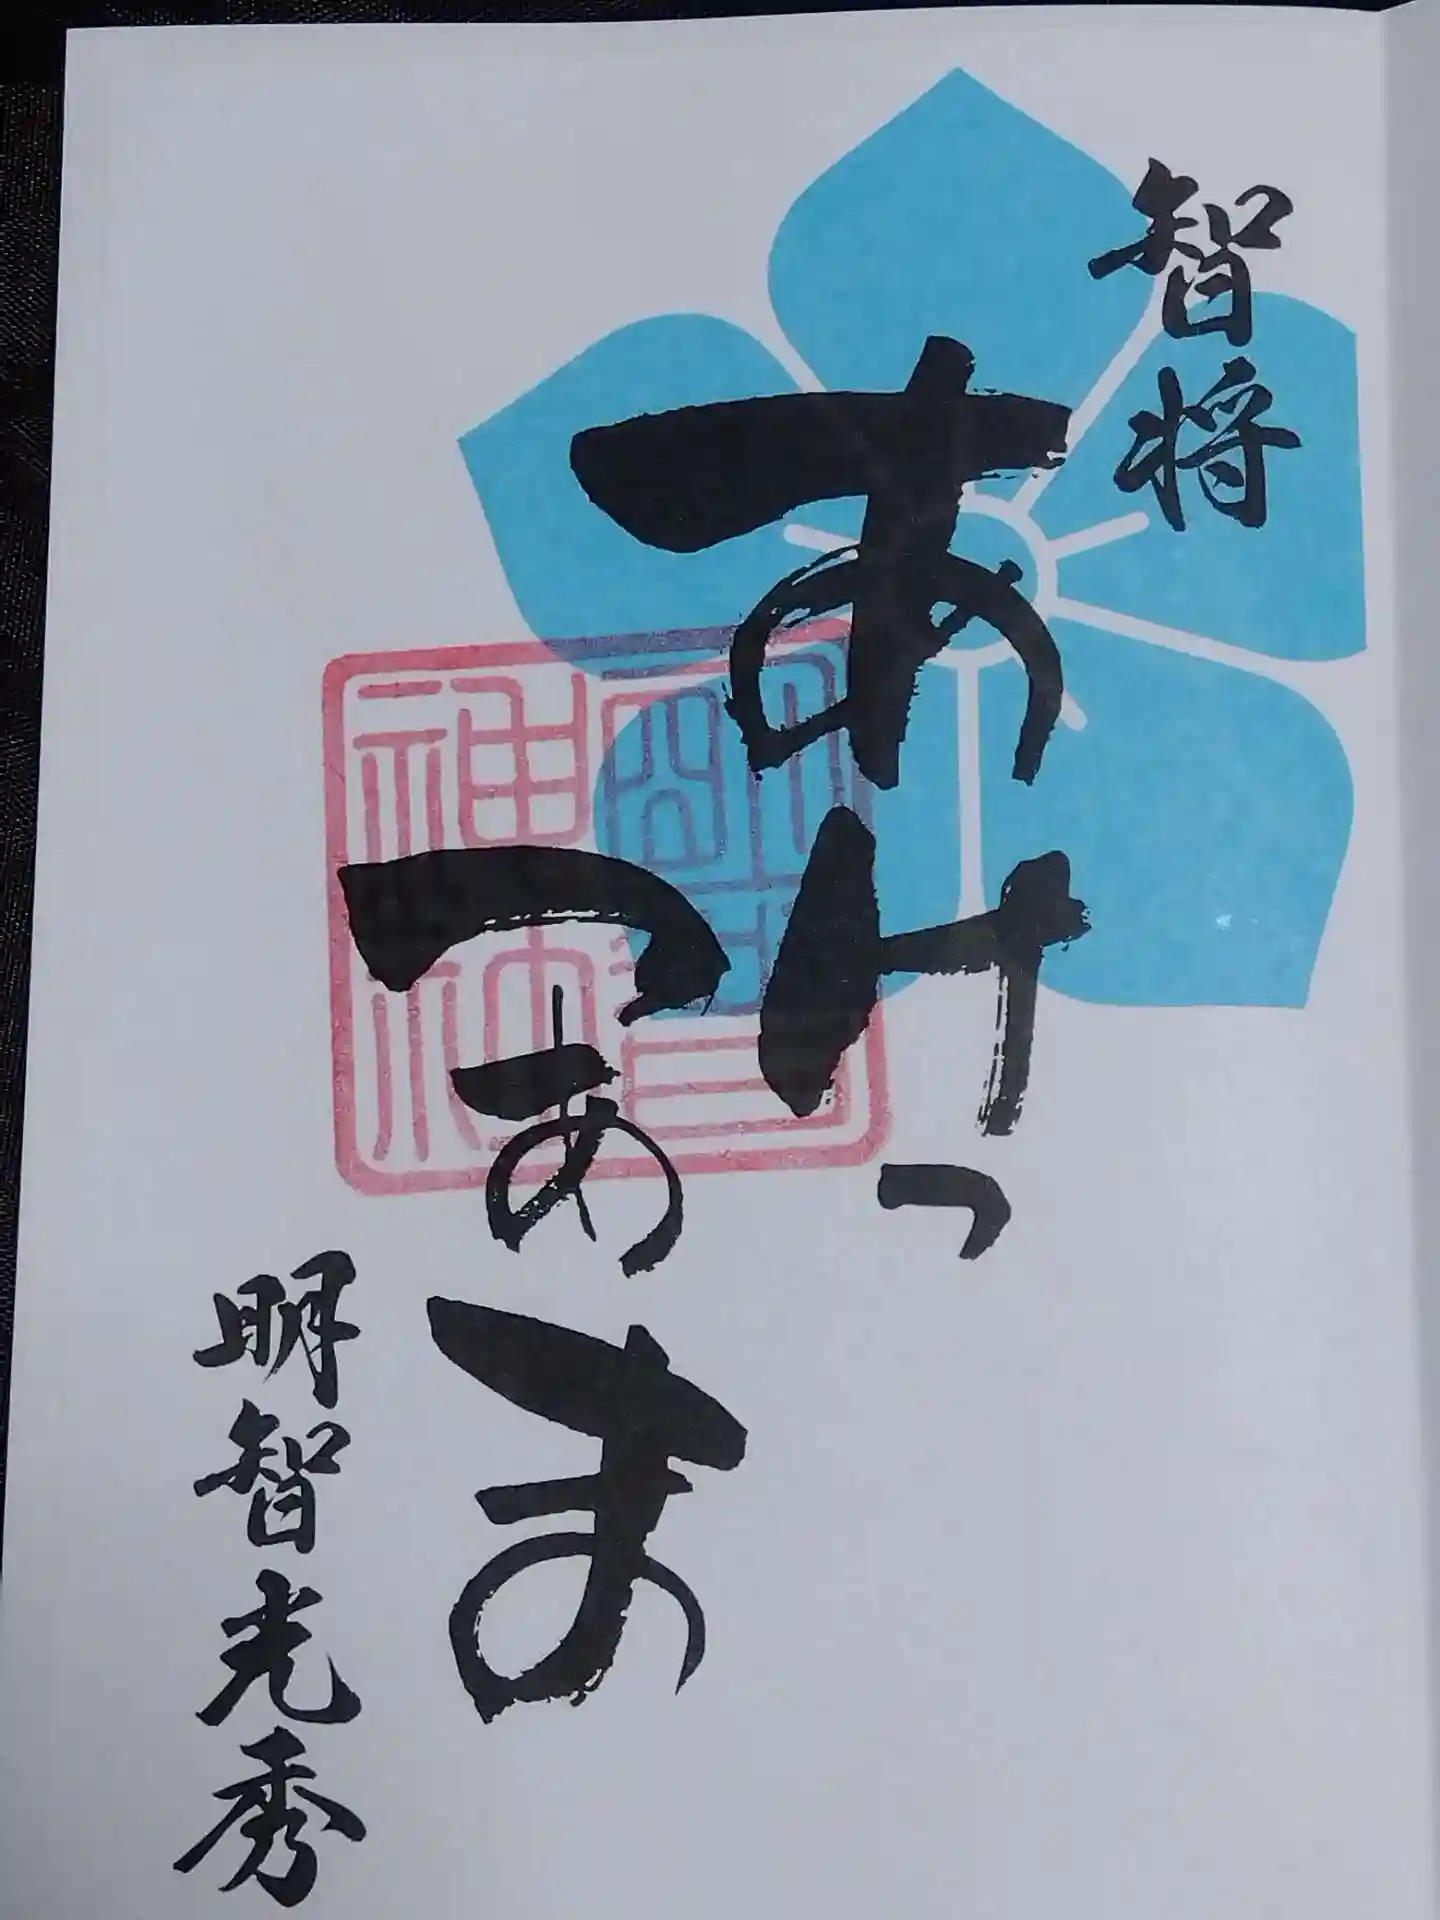 智将
あけっ
つぁま
明智光秀
明智
神社